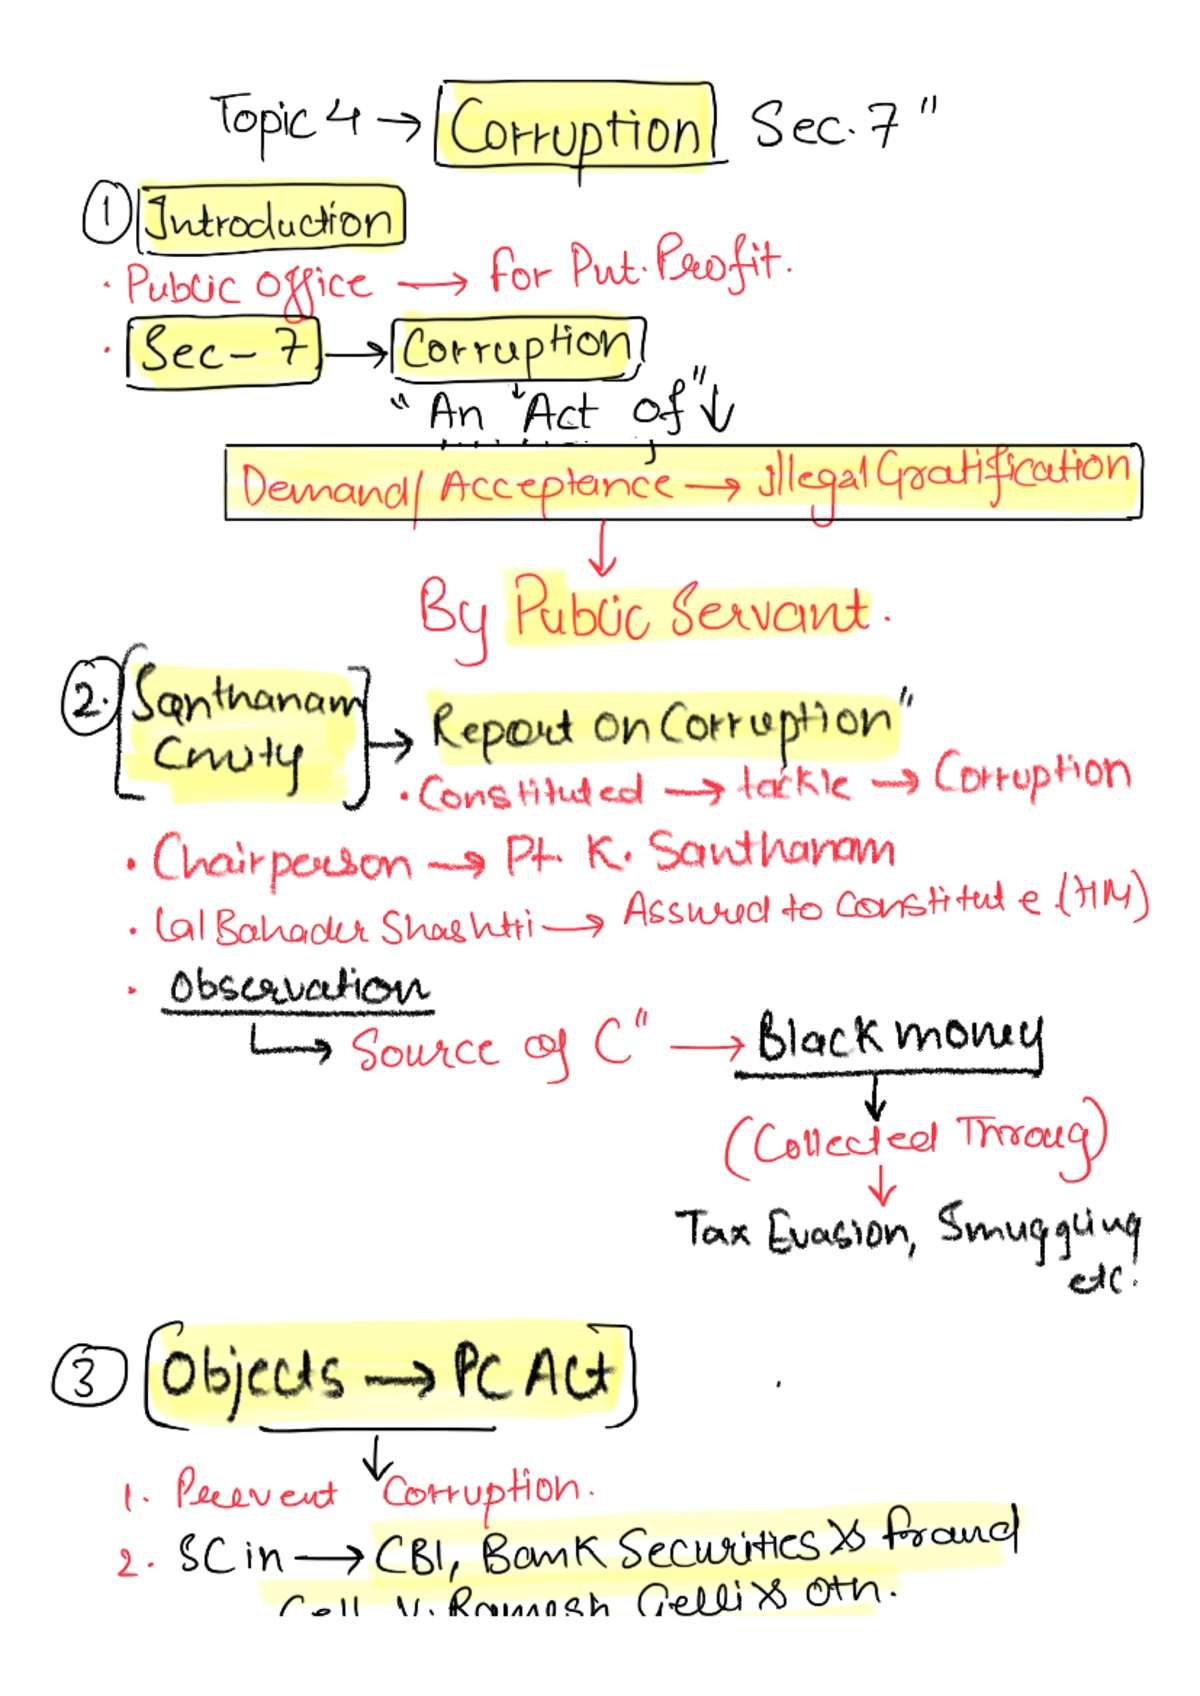 Topic 4 → Corruption Sec. 7"
① Introduction
• Public office → for Put. Profit.
• Sec - 7 → Corruption
"An Act of" ↓
Demand / Acceptance → Illegal Gratification
↓
By Public Servant.
2. Santhanam Cmuty → Report on Corruption"
• Constituted → tackle → Corruption
• Chairperson → Pt. K. Santhanam
• Lal Bahader Shashtri → Assured to Constitute. (HM)
• Observation
↳ Source of C" → Black money
↓
(Collected Throug)
↓
Tax Evasion, Smuggling
etc.
③ Objects → PC Act
↓
1. Preevent Corruption.
2. SC in → CBI, Bank Securities & fraud
Cell V. Ramesh Gelli & oth.